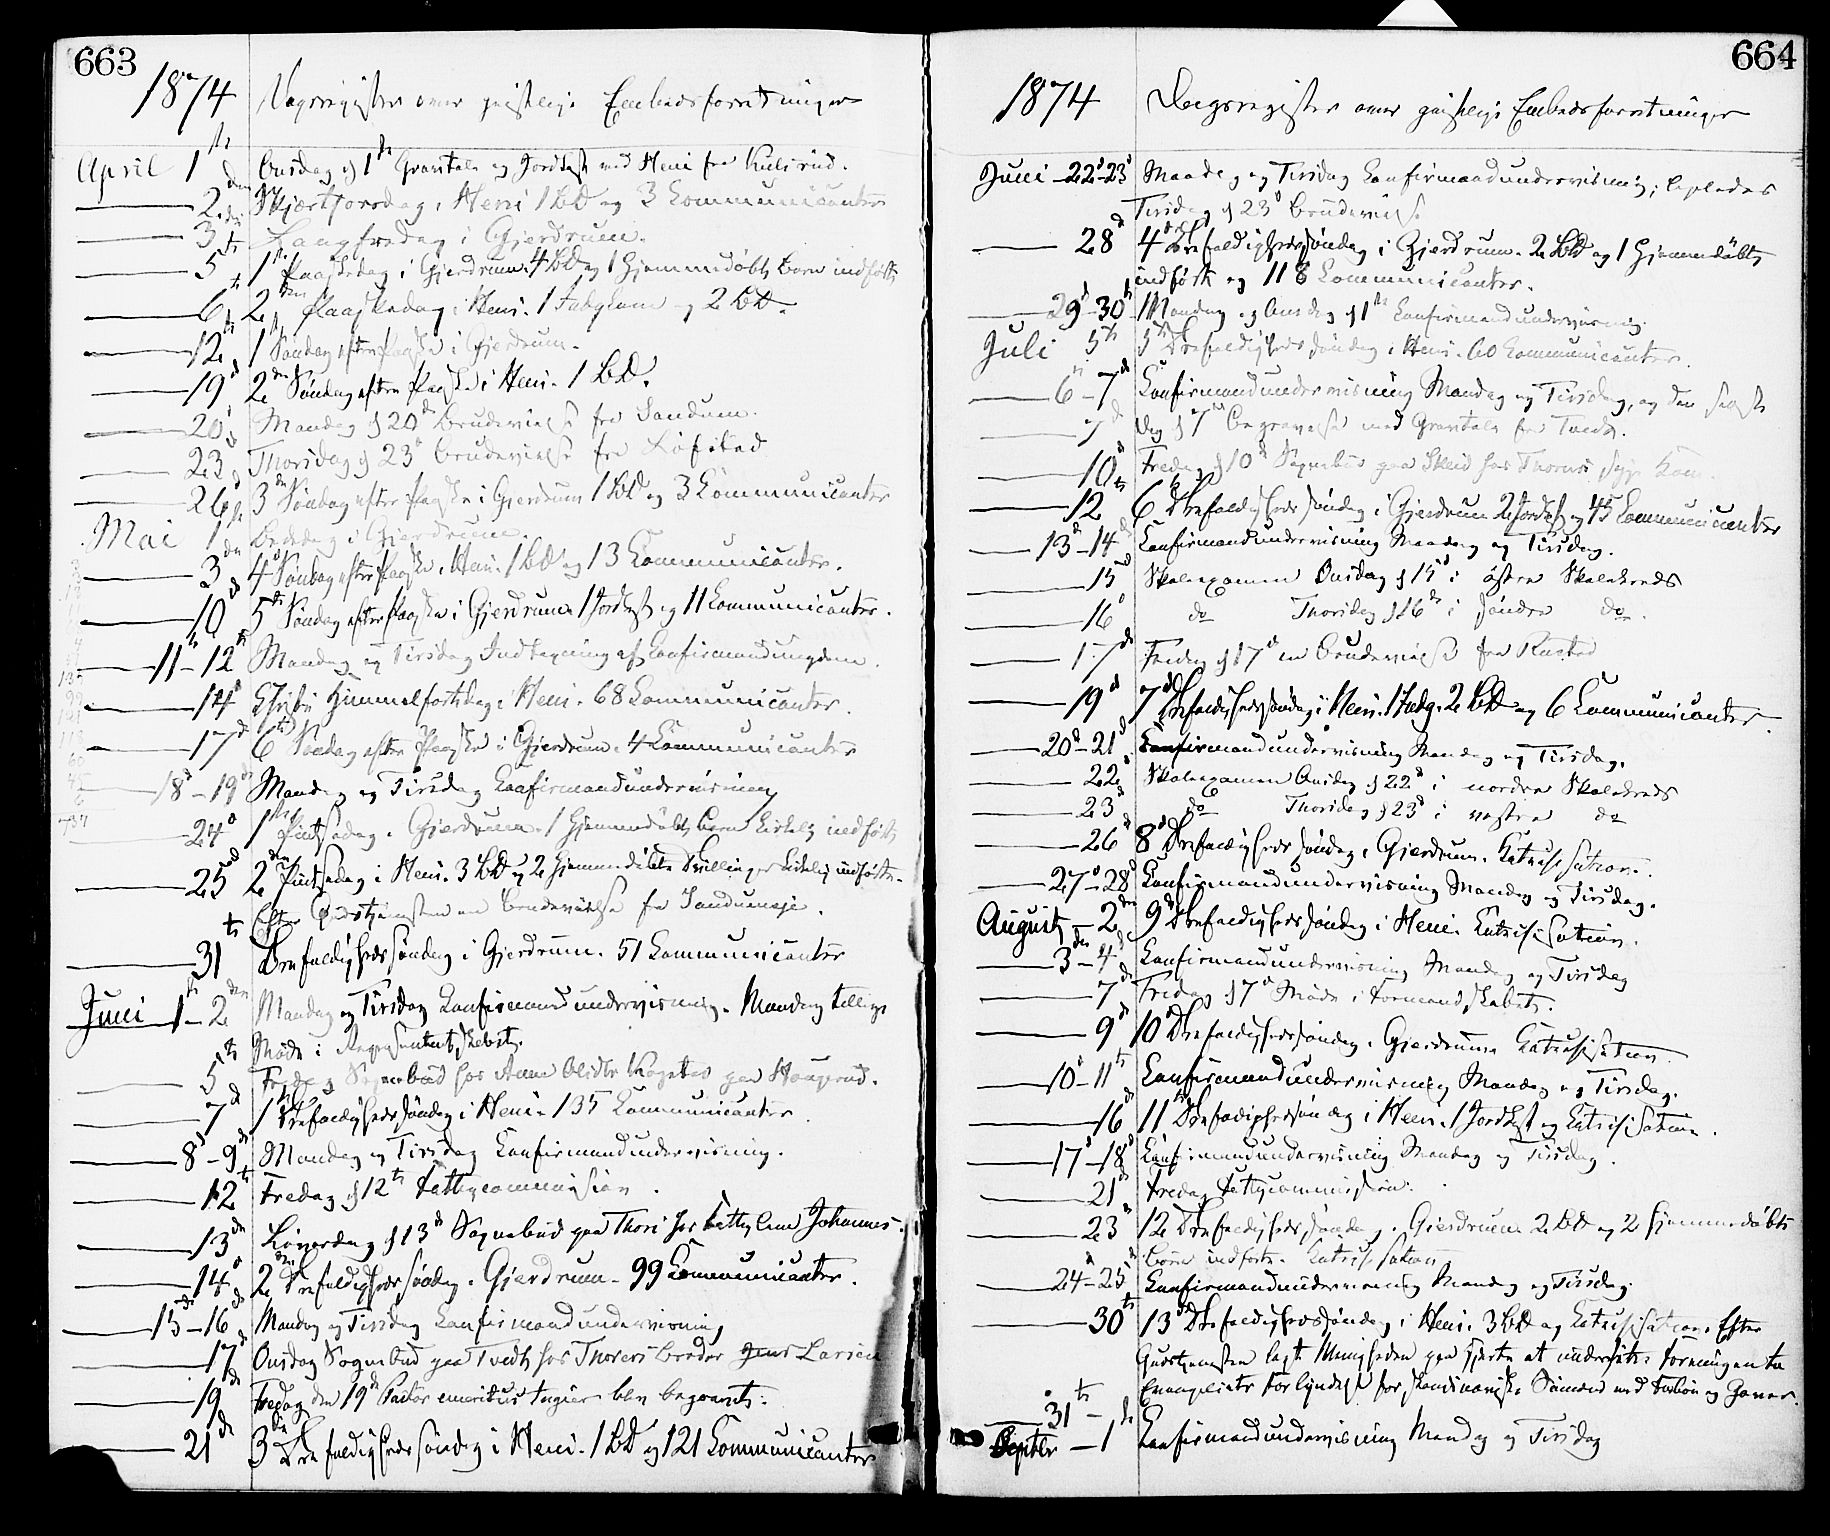 663
1874 Dagsregister over geistlige Embedsforretninger
April 1ste Onsdag d 1ste Gravtale og Jordkast ved Heni fra Kulsrud.
2den Skjærthorsdag i Heni 1 BD og 3 Communicanter
3die Langfredag i Gjerdrum.
5te 1ste Paaskedag i Gjerdrum. 4 BD og 1 Hjemmedøbt Barn indført
6te 2den Paaskedag i Heni. 1 og 2 BD.
12te 1ste Søndag efter Paaske i Gjerdrum.
19d 2den Søndag efter Paaske i Heni. 1 BD.
20d Mandag d 20d Brudevielse fra Sandum.
23d Thorsdag d 23d Brudevielse fra Løfstad
26d 3die Søndag efter Paaske i Gjerdrum 1 BD og 3 Communicanter
Mai 1ste Bededag i Gjerdrum.
3die 4d Søndag efter Paaske i Heni. 1 BD og 13 Communicanter.
10d 5te Søndag efter Paaske i Gjerdrum. 1 Jordkast og 11 Communicanter.
11te-12te Mandag og Tirsdag Indtegning af Confirmandungdom.
14d Christi Himmelfartsdag i Heni. 68 Communicanter.
17d 6te Søndag efter Paaske i Gjerdrum. 4 Communicanter
18d-19d Mandag og Tirsdag Confirmandundervisning
24d 1ste Pintsedag i Gjerdrum. 1 Hjemmedøbt Barn kirkelig indført
25d 2den Pintsedag i Heni. 3 BD og 2 Hjemmedøbte Tvillinger kirkelig indførte.
Efter Gudstjenesten en Brudevielse fra Sandumeje.
31te Trefoldighedssøndag i Gjerdrum. 51 Communicanter
Juni 1ste-2den Mandag og Tirsdag Confirmandundervisning. Mandag tillige
Møde i Repræsentantskabet.
5te Fredag Sognebud hos Anne paa
7d 1ste Trefoldighedssøndag i Heni. 135 Communicanter
8d-9d Mandag og Tirsdag Confirmandundervisning.
12te Fredag d 12te Fattigcommission.
13de Løverdag d 13d Sognebud paa Thori hos Fattiglem Johannes.
14d 2den Trefoldighedssøndag i Gjerdrum. 99 Communicanter.
15de-16de Mandag og Tirsdag Confirmandundervisning
17d Onsdag Sognebud paa Tvedt hos Thorers Broder Jens Larsen
19de Fredag den 19de Pastor emeritus blev begravet.
21de 3die Trefoldighedssøndag i Heni. 1 BD og 121 Communicanter
664
1874 Dagsregister over geistlige Embedsforretninger
Juni 22d-23d Mandag og Tirsdag Confirmandundervisning;
Tirsdag d 23d Brudevielse
28d 4d Trefoldighedssøndag i Gjerdrum. 2 BD og 1 Hjemmedøbt
indført og 118 Communicanter.
29d-30te Mandag og Confirmandundervisning
Juli 5te 5te Trefoldighedssøndag i Heni. 60 Communicanter.
6te-7d Confirmandundervisning Mandag og Tirsdag, og den sidste
7d Dag d 7d Begravelse med Gravtale fra Tvedt.
10d Fredag d 10d Sognebud paa hos Thorers
12te 6te Trefoldighedssøndag i Gjerdrum 2 Jordkast og 45 Communicanter
13de-14d Confirmandundervisning Mandag og Tirsdag.
15d Skoleexamen Onsdag d 15d i østre Skolekreds
16d do Thorsdag d 16de i søndre do.
17de Fredag d 17d en Brudevielse fra Rustad
19d 7d Trefoldighedssøndag i Heni. 1 Indg. 2 BD og 6 Communicanter.
20d-21d Confirmandundervisning Mandag og Tirsdag.
22d Skoleexamen Onsdag d 22d i nordre Skolekreds
23d do Thorsdag d 23d i vestre do
26d 8d Trefoldighedssøndag i Gjerdrum. Katechisation.
27d-28d Confirmandundervisning Mandag og Tirsdag.
August 2den 9d Trefoldighedssøndag i Heni. Katechisation.
3die-4d Confirmandundervisning Mandag og Tirsdag
7de Fredag d 7d Møde i Formandskabet.
9d 10d Trefoldighedssøndag i Gjerdrum Katechisation.
10d-11te Confirmandundervisning Mandag og Tirsdag.
16de 11te Trefoldighedssøndag i Heni. 1 Jordkast og Katechisation.
17d-18d Confirmandundervisning Mandag og Tirsdag.
21d Fredag Fattigcommission.
23d 12te Trefoldighedssøndag i Gjerdrum 2 BD og 2 hjemmedøbte
Børn indførte. Katechisation
24d-25d Confirmandundervisning Mandag og Tirsdag.
30te 13de Trefoldighedssøndag i Heni. 3 BD og Katechisation. Efter
Gudstjenesten lagt Menigheden paa Hjerte at understøtte Foreningen til
Evangeliets Forkyndelse for skandinaviske Sømænd med Forbøn og Gaver.
31te-
Septbr 1ste Confirmandundervisning Mandag og Tirsdag